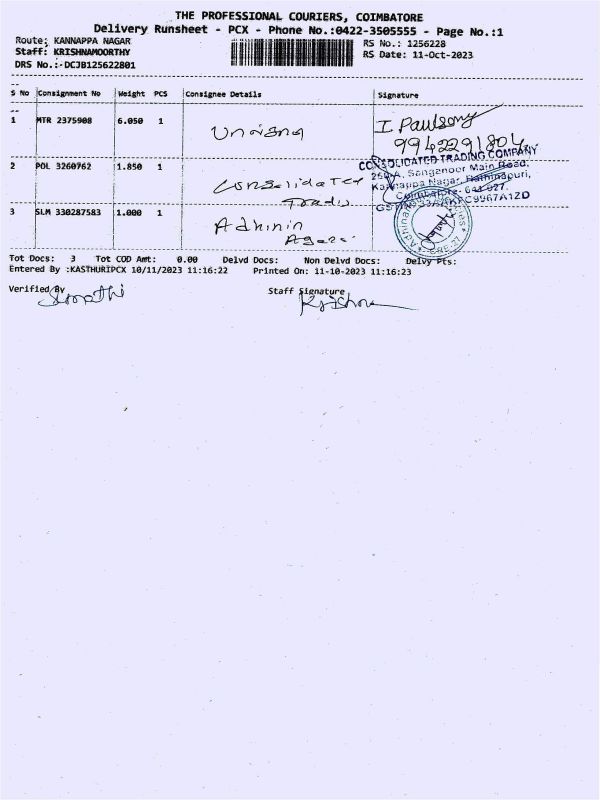 THE PROFESSIONAL COURIERS, COIMBATORE
Delivery Runsheet - PCX - Phone No.:0422-3505555 - Page No.:1
Route: KANNAPPA NAGAR
RS No.: 1256228
Staff: KRISHNAMOORTHY
RS Date: 11-Oct-2023
DRS No.:-DCJB125622801
S No Consignment No Weight PCS Consignee Details Signature
1 MTR 2375908 6.050 1
I Paulsamy
9942291804
2 POL 3260762 1.850 1 Consolidated
Tradi
CONSOLIDATED TRADING COMPANY
250-A, Sanganoor Main Road,
Kannappa Nagar, Rathinapuri,
Coimbatore- 641 027.
3 SLM 330287583 1.000 1 Adhinin
Tot Docs: 3 Tot COD Amt: 0.00 Delvd Docs: Non Delvd Docs: Delvy Pts:
Entered By :KASTHURIPCX 10/11/2023 11:16:22 Printed On: 11-10-2023 11:16:23
Verified By
Staff Signature